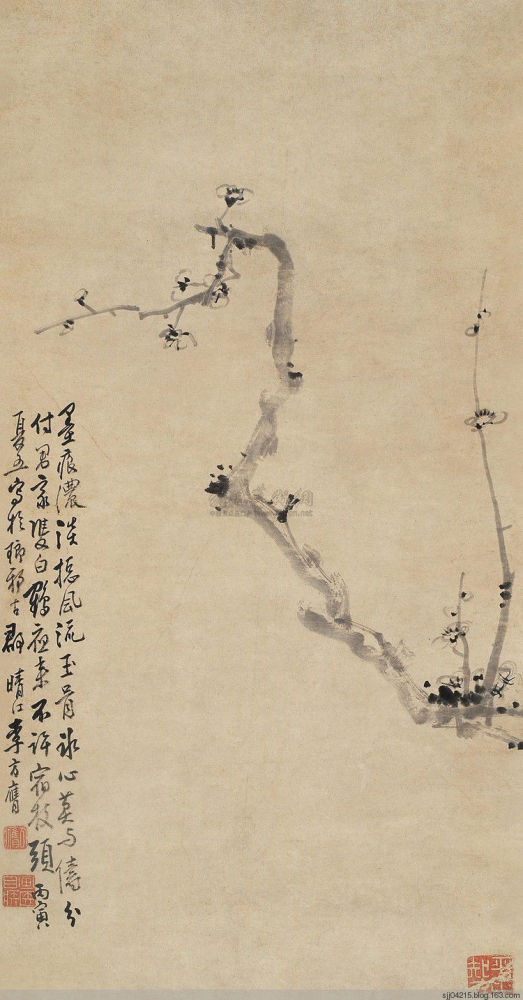 墨痕濃淡總風流玉骨冰心莫与儔分
付君家雙白鶴夜來不許宿枝頭丙寅
夏五寫於瑯邪古郡晴江李方膺
sjj04215.blog.163.com